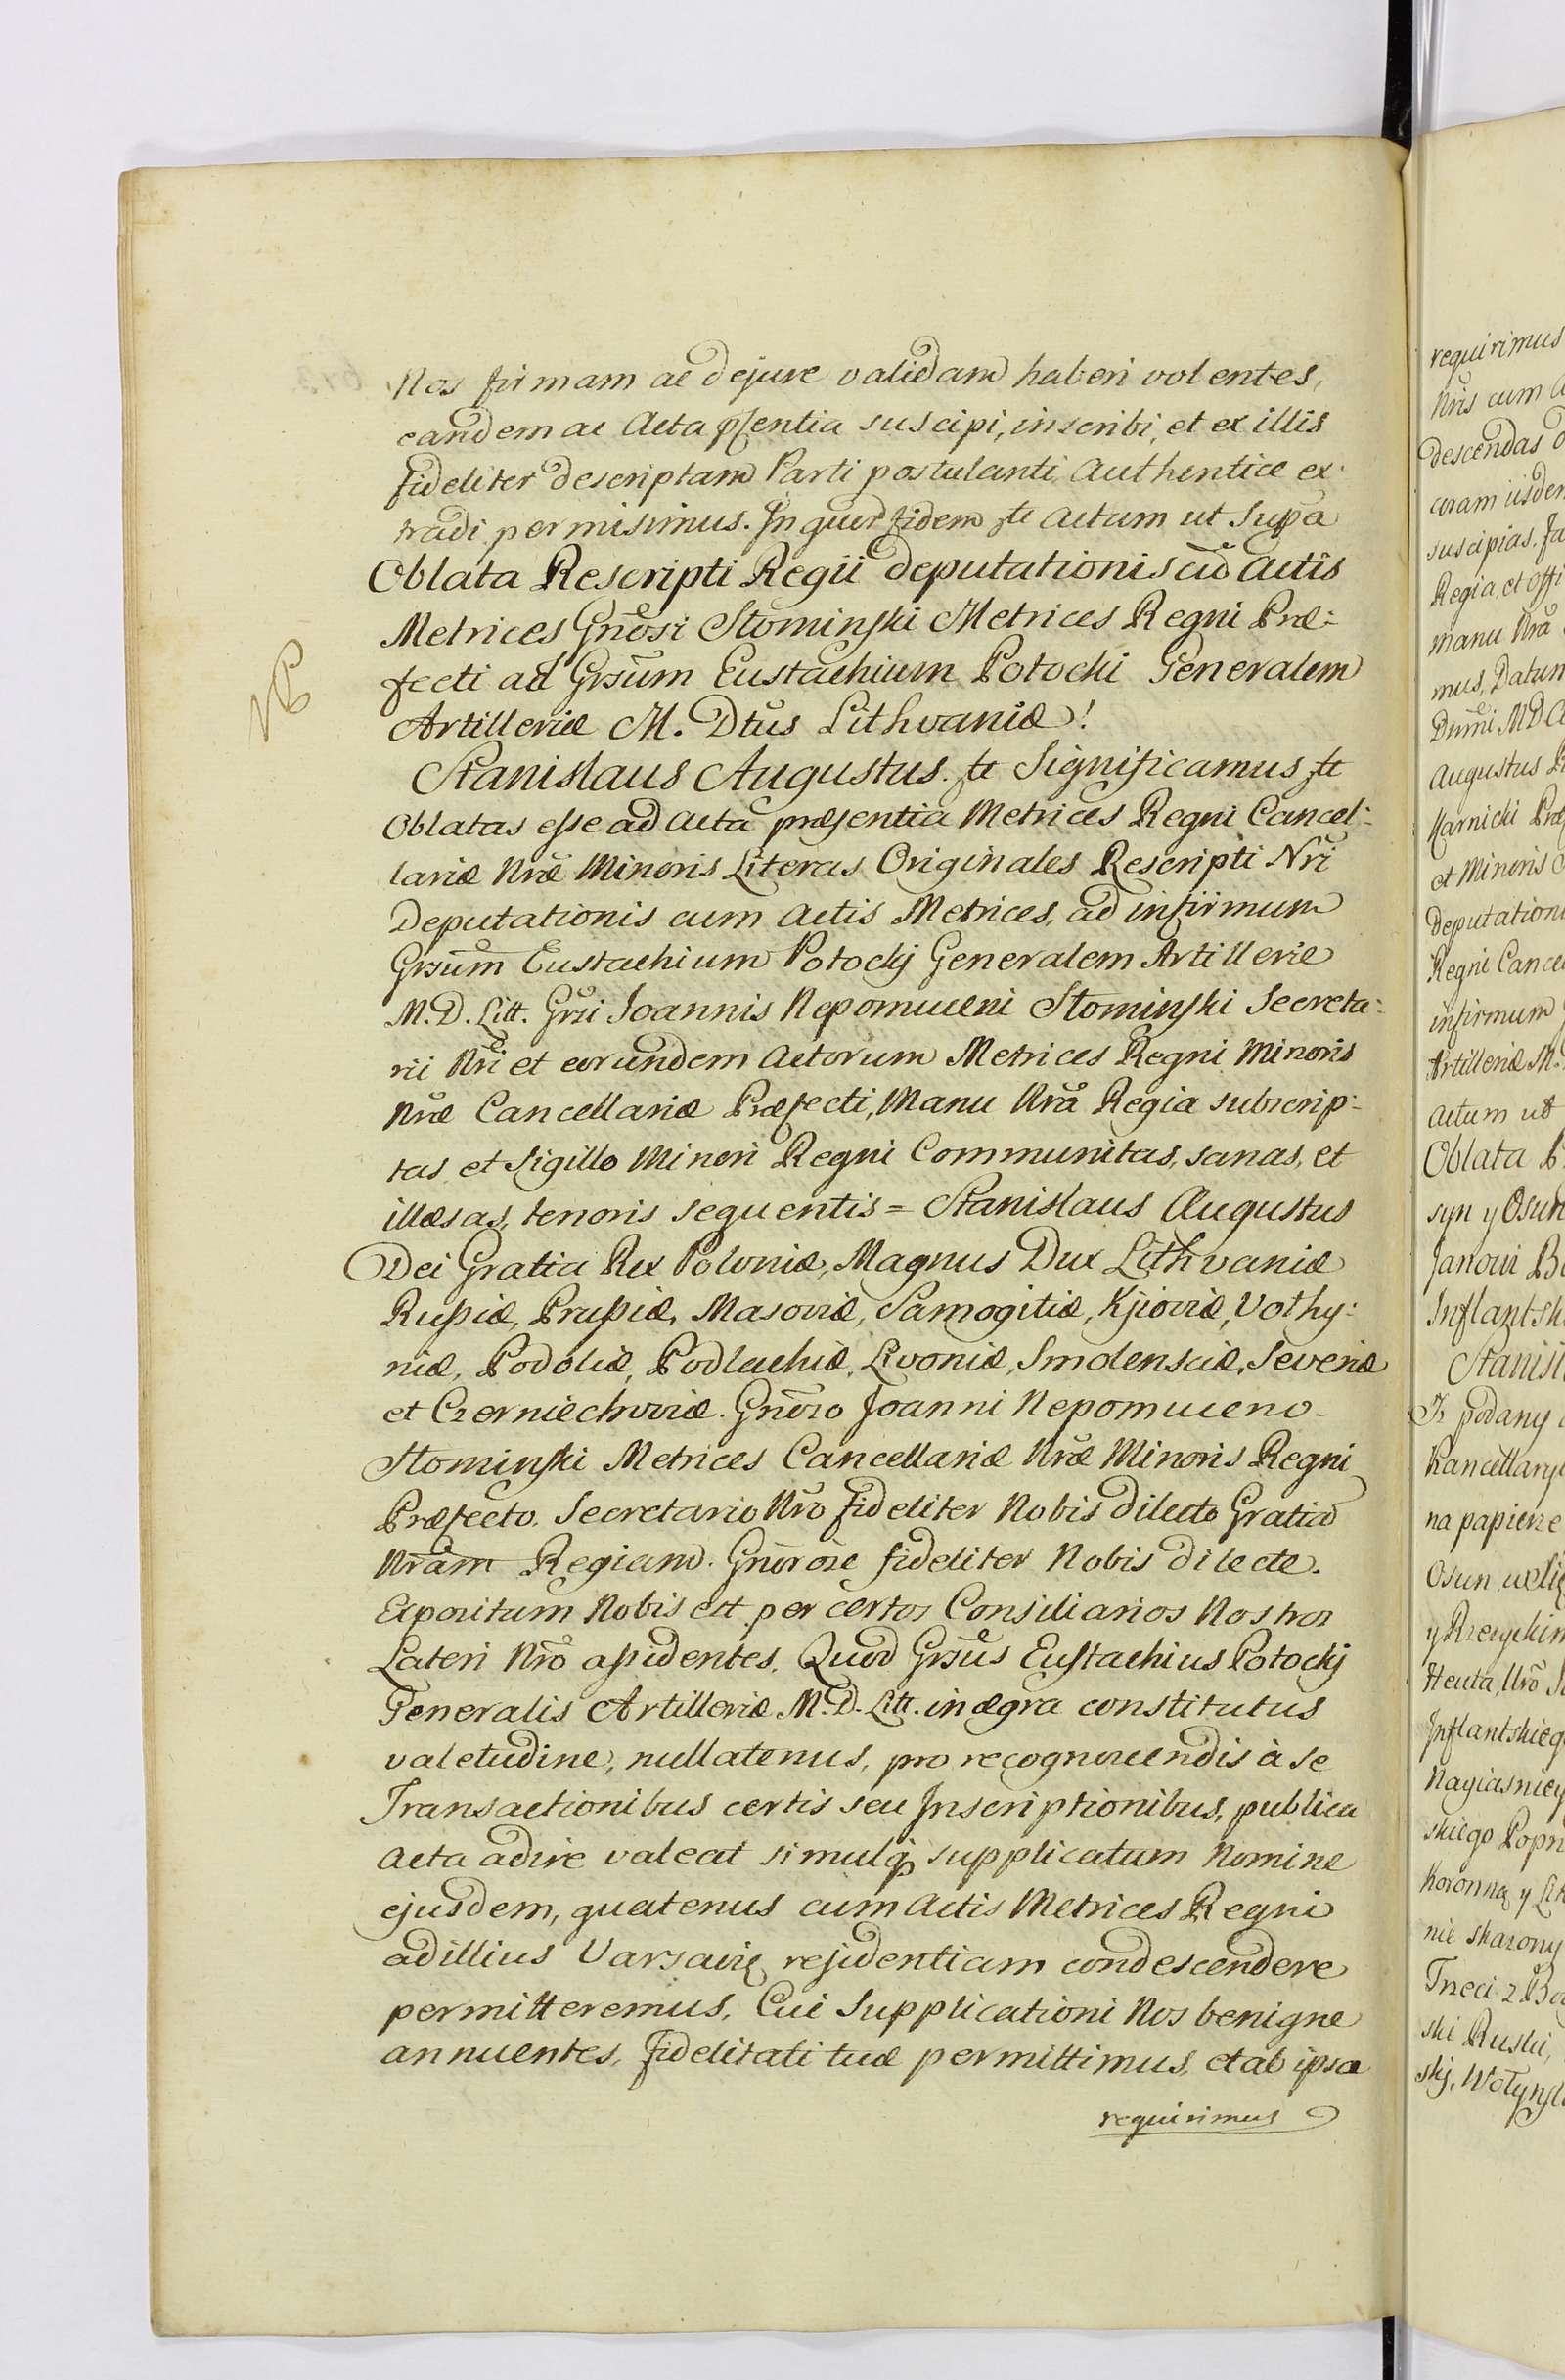 Nos firmam ac dejure validam haberi volentes,
eandem ac Acta pſentia suscipi, inscribi, et ex illis
fideliter descriptam Parti postulanti Authentice ex-
tradi permisimus. In quor̃ fidem &tc Actum ut Sup̃a
Oblata Rescripti Regii deputationis cũ Actis
Metrices Gnõsi Słominſki Metrices Regni Præ:
fecti ad Grsũm Eustachium Potocki Generalem
Artilleriæ M. Dtũs Lithvaniæ!
NB
Stanislaus Augustus &tc Significamus &tc
Oblatas eſse ad Acta præsentia Metrices Regni Cancel:
lariæ Nræ̃ Minoris Literas Originales Rescripti Nrĩ
Deputationis cum Actis Metrices, ad infirmum
Grsũm Eustachium Potockj Generalem Artilleriæ
M. D. Litt. Grsĩ Joannis Nepomuceni Słominſki Secreta:
rii Nrĩ et eorundem Actorum Metrices Regni Minoris
Nræ̃ Cancellariæ Præfecti, Manu Nrã Regia subscrip:
tas et Sigillo Minori Regni Communitas, sanas, et
illæsas, tenoris sequentis = Stanislaus Augustus
Dei Gratia Rex Poloniæ, Magnus Dux Lithvaniæ
Ruſsiæ, Pruſsiæ, Masoviæ, Samogitiæ, Kijoviæ, Volhy:
niæ, Podoliæ, Podlachiæ, Livoniæ, Smolensciæ, Severiæ
et Czerniechoviæ. Gnõso Joanni Nepomuceno
Słominſki Metrices Cancellariæ Nræ̃ Minoris Regni
Præfecto, Secretario Nrõ fideliter Nobis dilecto Gratiam
Nrãm Regiam. Gnẽrose fideliter Nobis dilecte.
Expositum Nobis est per certos Consiliarios Nostros
Lateri Nrõ aſsidentes, Quod Grsũs Euſtachius Potockj
Generalis Artilleriæ M. D. Litt. in ægra constitutus
valetudine, nullatenus, pro recognoscendis à se
Transactionibus certis seu Inscriptionibus, publica
Acta adire valeat simulq; supplicatum Nomine
ejusdem, quatenus cum Actis Metrices Regni
ad illius Varsavię residentiam condescendere
permitteremus, Cui Supplicationi Nos benigne
annuentes, fidelitati tuæ permittimus, et ab ipsa
requirimus
requirimus
Nris cum A
descendas
coram iisdem
suscipias. Ja
Regia, et offi
manu Nrã
mus, Datum
Dnĩni MDC
Augustus R
Karnicki Præ
et Minoris
Deputation
Regni Cance
infirmum
Artilleriæ M.
Actum ut
Oblata
syn y Osun
Janowi
Inflantsk
Stanisl
Iż podany
Kancellary
na papierze
Osun
y Rzeczyckim
Heuta, Urõ
Inflantskieg
Nayiasniey
skiego Popr
Koronną y Lit
nie skazony
Trzeci z Bo
ski Ruski,
skj, Wołynſk